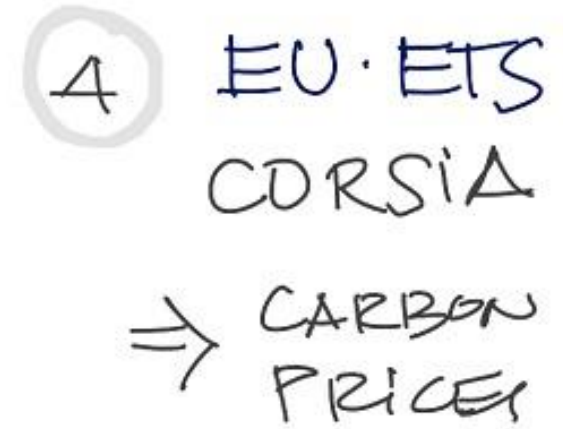 4 EU·ETS
CORSiA
⇒ CARBON
PRiCES